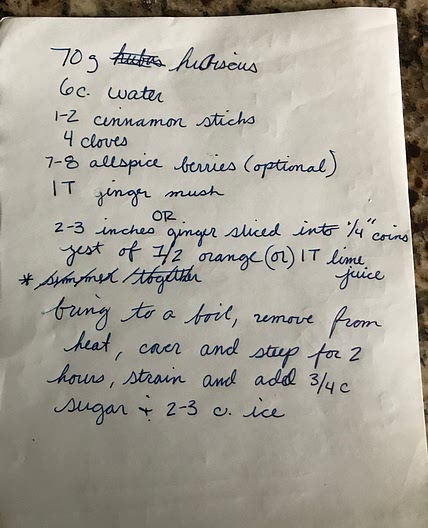 70 g hibiscus
6 c. water
1-2 cinnamon sticks
4 cloves
7-8 allspice berries (optional)
1 T ginger mush
OR
2-3 inches ginger sliced into 1/4" coins
zest of 1/2 orange (or) 1 T lime juice
* simmer together
bring to a boil, remove from
heat, cover and steep for 2
hours, strain and add 3/4 c
sugar + 2-3 c. ice